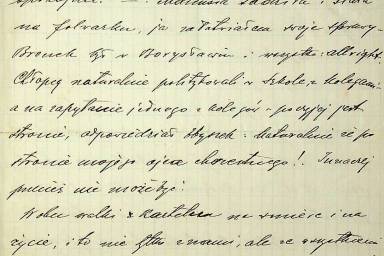 na folwarku, ja załatwiałam swoje sprawy.
Bronek był w Borysławiu i wszystko: allright.
Chłopcy naturalnie politykowali w szkole z kolegami
a na zapytanie jednego z kolegów - po czyjej jest
stronie, odpowiedział Zbyszek: Naturalnie że po
stronie mojego ojca chrzestnego! Inaczej
przecież nie może być!
Wobec walki z kartelem na śmierć i na
życie, i to nie tylko z nami, ale ze wszystkimi